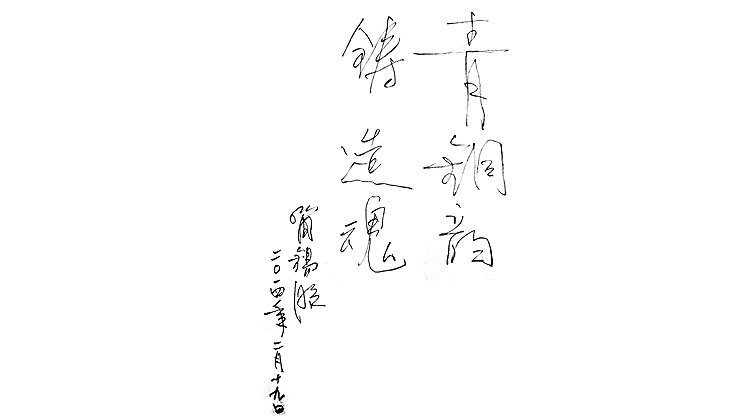 青铜韵
铸造魂
二〇一四年二月十九日